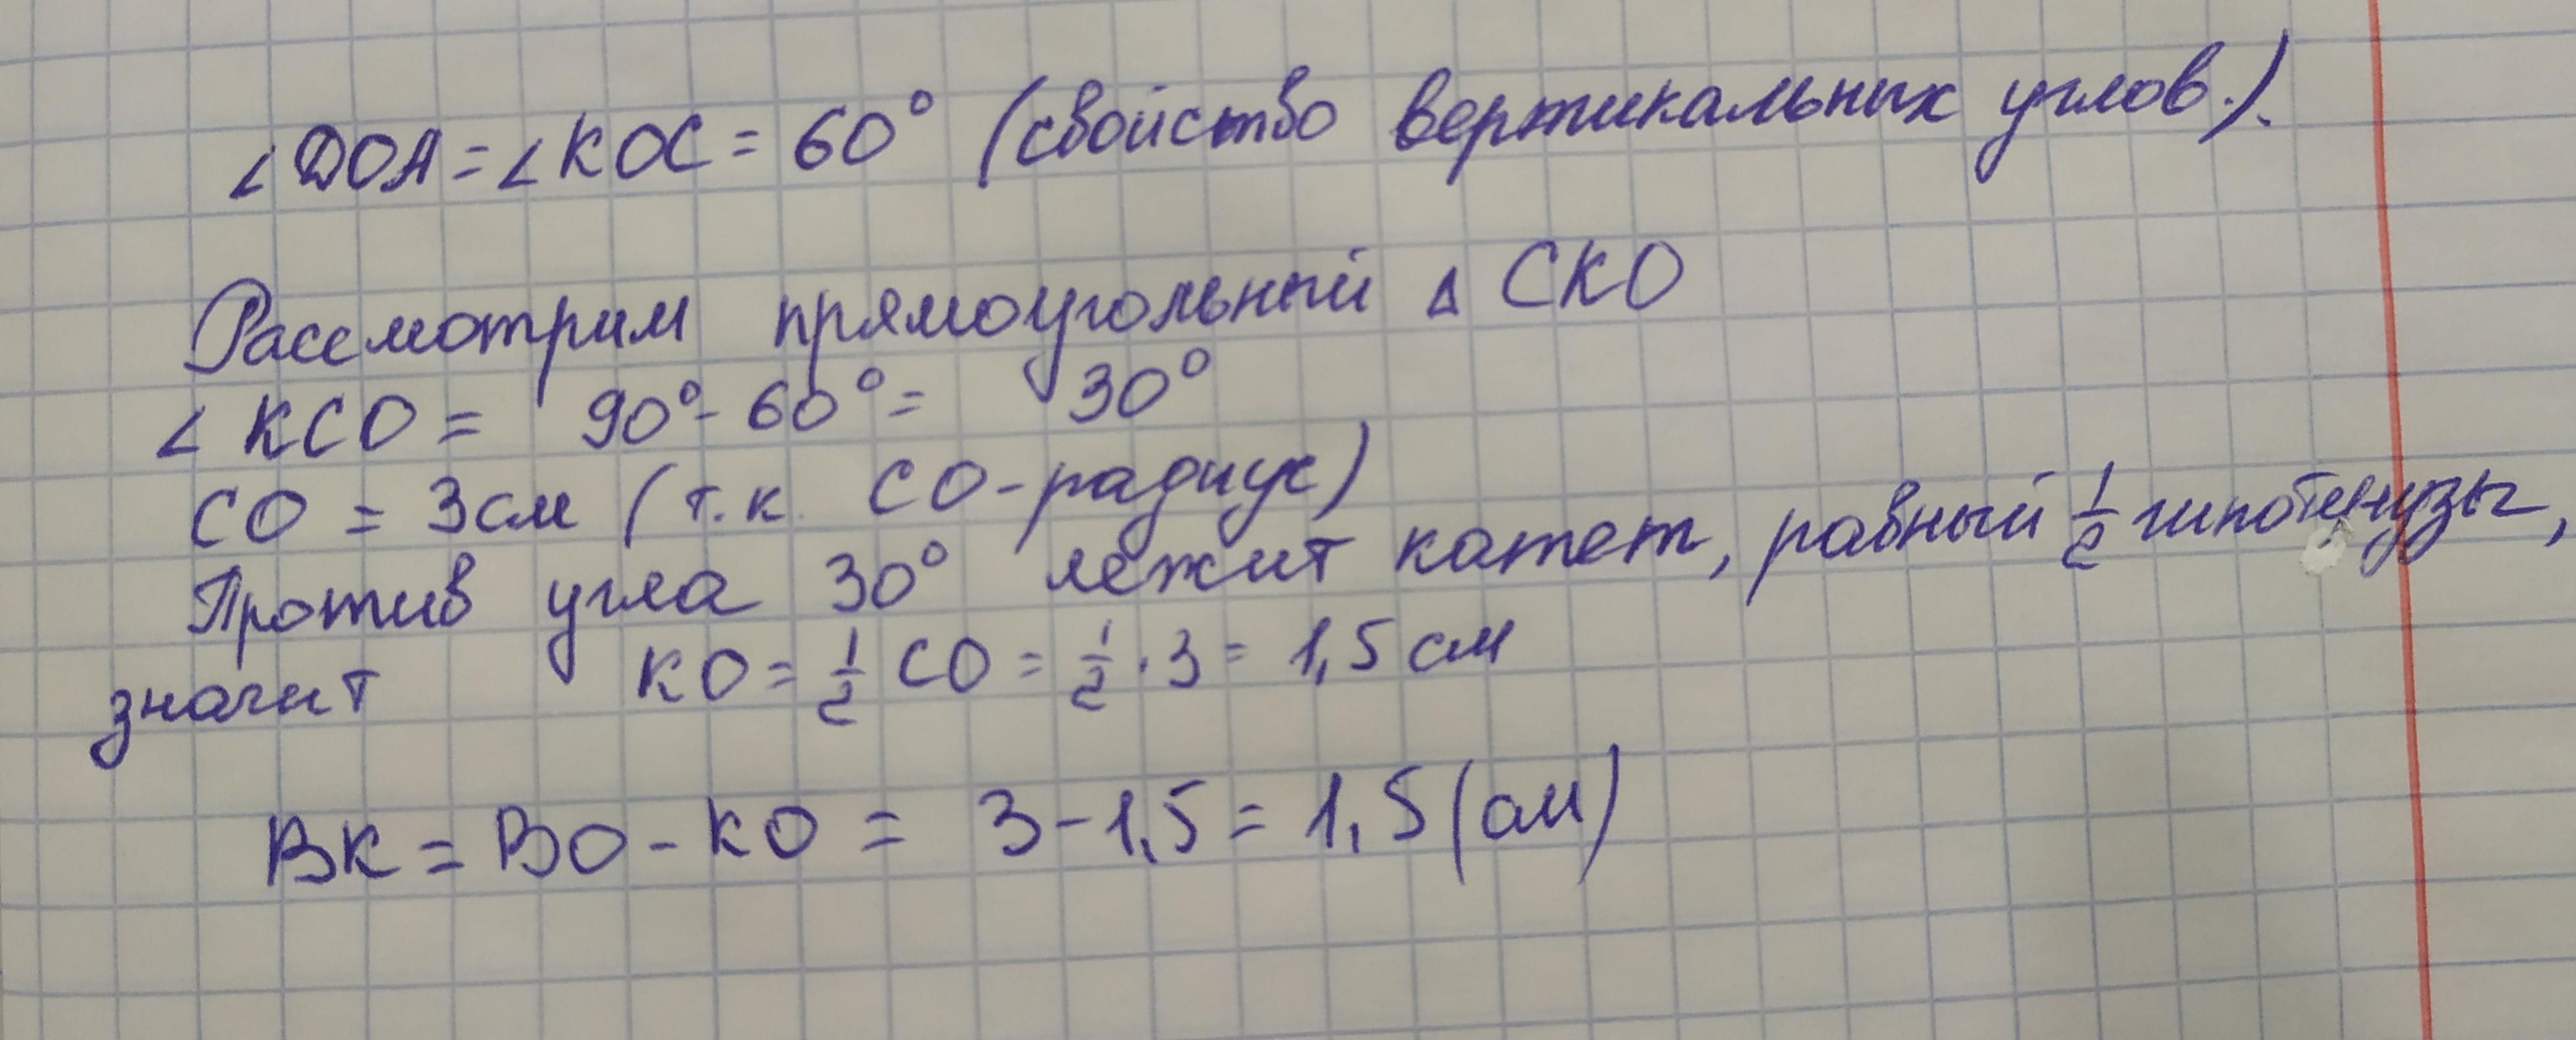 ∠DOA = ∠KOC = 60° (свойство вертикальных углов.).
Рассмотрим прямоугольный △ CKO
∠ KCO = 90° - 60° = 30°
CO = 3 см (т.к. CO - радиус)
Против угла 30° лежит катет, равный 1/2 гипотенузы,
значит KO = 1/2 CO = 1/2 · 3 = 1,5 см
BK = BO - KO = 3 - 1,5 = 1,5 (см)